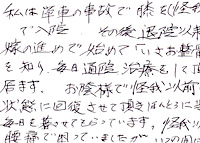 私は単車の事故で膝を(怪我
で入院 その後退院以前
嫁の進めで始めて「いさお整骨
を知り、毎日通院治療をして頂
居ます。お陰様で怪我以前
状態に回復させて頂きほんとうに
毎日を暮させてもらっています。怪我以
腰痛で困っていましたが